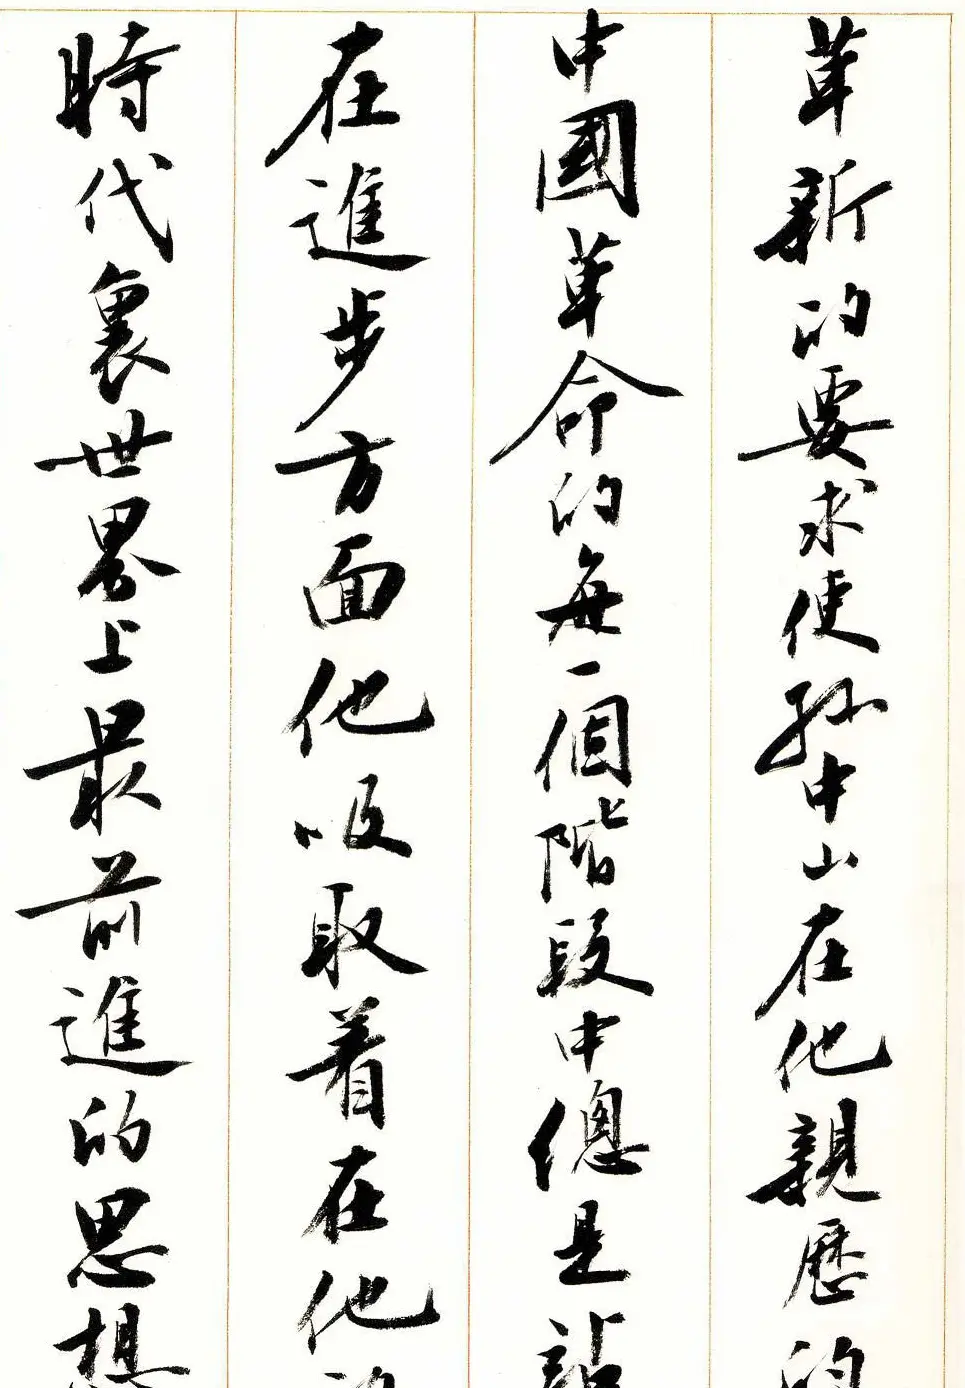 革新的要求使孫中山在他親歷的
中國革命的每一個階段中總是站
在進步方面他吸取着在他
時代裏世界上最前進的思想